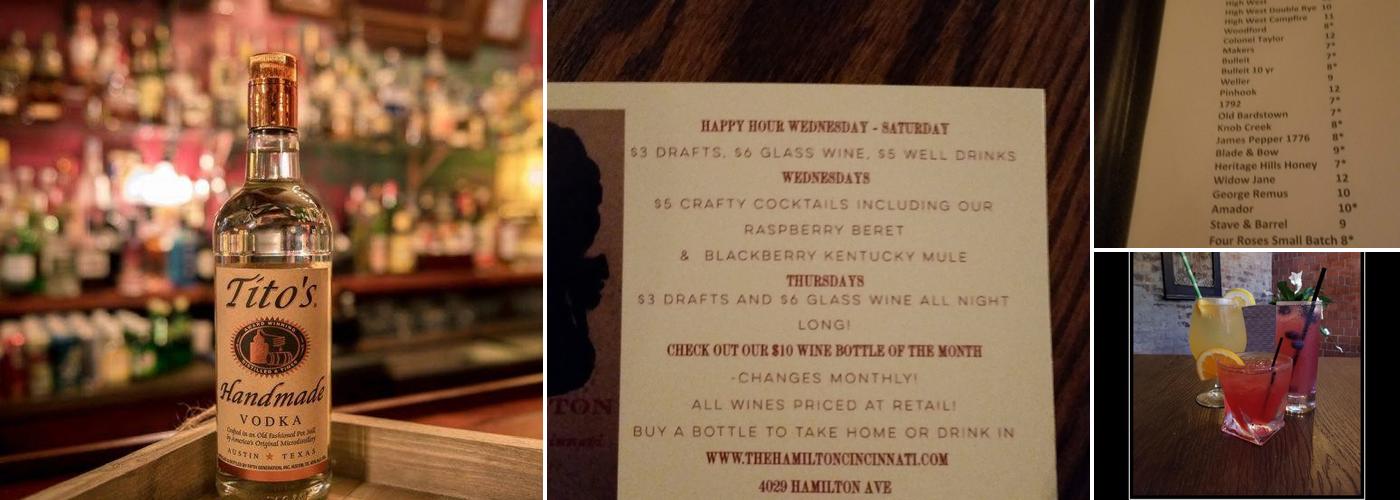 Tito's
AWARD WINNING
DISTILLED 6 TIMES
Handmade
VODKA
Crafted in an Old Fashioned Pot Still
by America's Original Microdistillery
AUSTIN ★ TEXAS
HAPPY HOUR WEDNESDAY - SATURDAY
$3 DRAFTS, $6 GLASS WINE, $5 WELL DRINKS
WEDNESDAYS
$5 CRAFTY COCKTAILS INCLUDING OUR
RASPBERRY BERET
& BLACKBERRY KENTUCKY MULE
THURSDAYS
$3 DRAFTS AND $6 GLASS WINE ALL NIGHT
LONG!
CHECK OUT OUR $10 WINE BOTTLE OF THE MONTH
-CHANGES MONTHLY!
ALL WINES PRICED AT RETAIL!
BUY A BOTTLE TO TAKE HOME OR DRINK IN
WWW.THEHAMILTONCINCINNATI.COM
4029 HAMILTON AVE
TON
High West
High West Double Rye 10
High West Campfire 11
Woodford 8*
Colonel Taylor 12
Makers 7*
Bulleit 7*
Bulleit 10 yr 8*
Weller 9
Pinhook 12
1792 7*
Old Bardstown 7*
Knob Creek 8*
James Pepper 1776 8*
Blade & Bow 9*
Heritage Hills Honey 7*
Widow Jane 12
George Remus 10
Amador 10*
Stave & Barrel 9
Four Roses Small Batch 8*